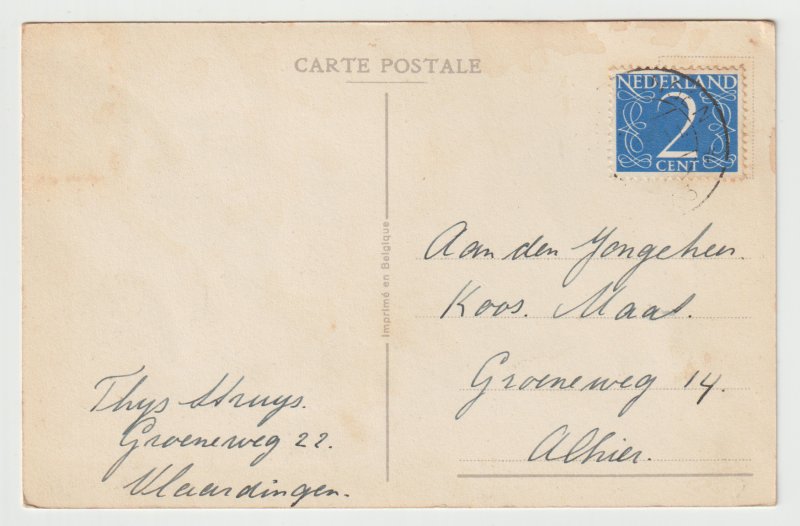 CARTE POSTALE
NEDERLAND
2
CENT
Imprimé en Belgique
Aan den Jongeheer.
Koos. Maat.
Groeneweg 14.
Alhier.
Thys Struys.
Groeneweg 22.
Vlaardingen.